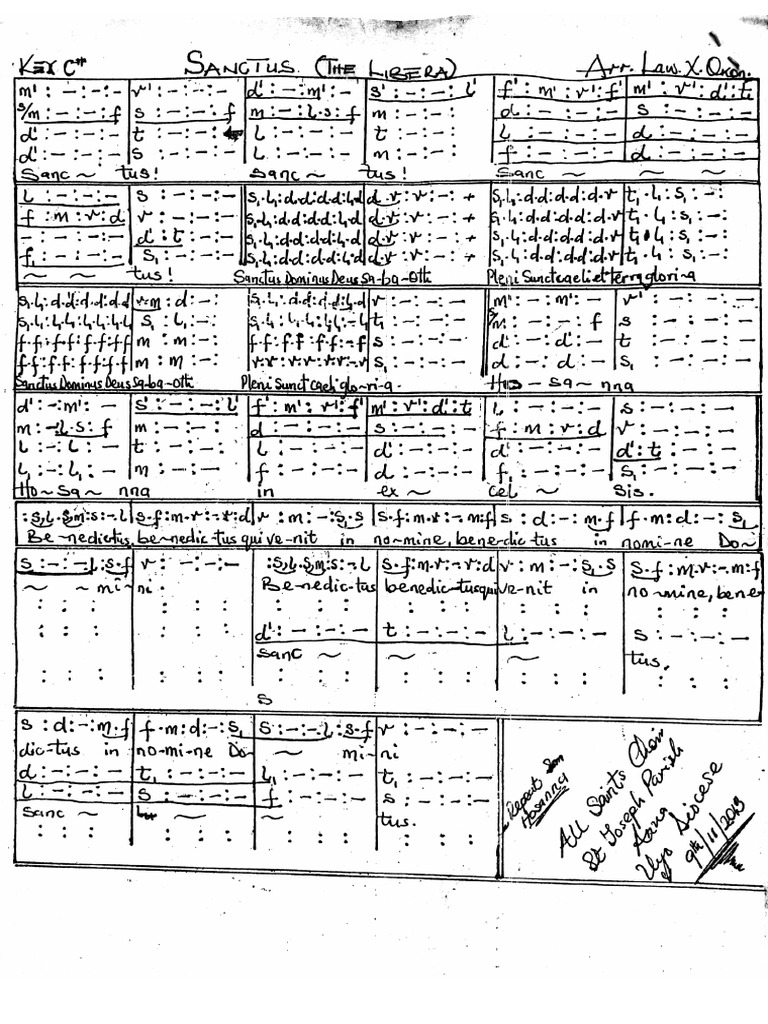 KEY C# SANCTUS (THE LIBERA) Arr. Law. X. Okon.
m' : – : – : – | r' : – : – : – | d' : – : m' : – | s' : – : – : l' | f' : m' : r' : f' | m' : r' : d' : t
s/m : – : – : f | s : – : – : f | m : – : l · s : f | m : – : – : – | d : – : – : – | s : – : – : –
d' : – : – : – | t : – : – : – | l : – : – : – | t : – : – : – | l : – : – : – | d : – : – : –
d' : – : – : – | s : – : – : – | l : – : – : – | m : – : – : – | f : – : – : – | d : – : – : –
Sanc ~ tus! Sanc ~ tus! Sanc ~ ~ ~
l : – : – : – | s : – : – : – | s₁.l₁:d.d:d.d:l.d | d.r : r : – : + | s₁.l₁:d.d:d.d:d.r | t₁.l₁ : s₁ : – :
f : m : r : d | r : – : – : – | s₁.l₁:d.d:d.d:l.d | d.r : r : – : + | s₁.l₁:d.d:d.d:d.r | t₁.l₁ : s₁ : – :
– : – : – : – | d : t : – : – | s₁.l₁:d.d:d.d:l.d | d.r : r : – : + | s₁.l₁:d.d:d.d:d.r | t₁.l₁ : s₁ : – :
f₁ : – : – : – | s₁ : – : – : – | s₁.l₁:d.d:d.d:l.d | d.r : r : – : + | s₁.l₁:d.d:d.d:d.r | t₁.l₁ : s₁ : – :
~ ~ tus! Sanctus Dominus Deus Sa-ba-oth Pleni Sunt caeli et terra glori-a
s₁.l₁:d.d:d.d:d.d | r.m : d : – : | s₁.l₁:d.d:d.d:l.d | r : – : – : – | m' : – : m' : – | r' : – : – : –
s₁.l₁:l₁.l₁:l₁.l₁:l₁.l₁ | s₁ : l₁ : – : | s₁.l₁:l₁.l₁:l₁.l₁:– l₁ | t₁ : – : – : – | s/m : – : – : f | s : – : – : –
f.f:f.f:f.f:f.f | m : m : – : | f.f:f.f:f.f:– f | s : – : – : – | d' : – : d' : – | t : – : – : –
f.f:f.f:f.f:f.f | m : m : – : | r.r:r.r:r.r:– r | s : – : – : – | d : – : d : – | s₁ : – : – : –
Sanctus Dominus Deus Sa-ba-oth Pleni Sunt caeli glo-ri-a. Ho – sa ~ nna
d' : – : m' : – | s' : – : – : l' | f' : m' : r' : f' | m' : r' : d' : t | l : – : – : – | s : – : – : –
m : – l . s : f | m : – : – : – | d : – : – : – | s : – : – : – | f : m : r : d | r : – : – : –
l : – : l : – | t : – : – : – | l : – : – : – | d' : – : – : – | d' : – : – : – | d' : t : – : –
l₁ : – : l₁ : – | m : – : – : – | f : – : – : – | d : – : – : – | f₁ : – : – : – | s₁ : – : – : –
Ho ~ Sa ~ nna in ex ~ cel ~ sis.
: s₁.l₁.s.m : s : – . l | s . f : m . r : – . r : d | r : m : – : s₁ . s | s . f : m . r : – . m : f | s : d : – : m . f | f . m : d : – : s₁
Be-nedictus, benedic-tus qui ve-nit in no-mine, bene-dic tus in nomi-ne Do~
s : – : – . l : s . f | r : – : – : – | : s₁.l₁.s.m : s : – l | s . f : m . r : – . r : d | r : m : – : s₁ . s | s . f : m . r : – . m : f
~ ~ mi ~ ni. Be-nedic-tus benedic-tusqui ve-nit in no-mine, bene
: : : | : : : | : : : | : : : | : : : | : : :
: : : | : : : | d' : – : – : – | t : – : – : – | l : – : – : – | s : – : – : –
sanc ~ ~ tus.
: : : | : : : | : : : | : : : | : : : | : : :
s
s : d : – : m . f | f . m : d : – : s₁ | s : – : – . l : s . f | r : – : – : –
dic-tus in no-mi-ne Do~ ~ mi~ ni
d : – : – : – | t₁ : – : – : – | l₁ : – : – : – | t₁ : – : – : –
l : – : – : – | s : – : – : – | f : – : – : – | s : – : – : –
sanc ~ ~ ~ tus.
: : : | : : : | : : : | : : :
Repeat
Hosanna
All Saints Choir
St Joseph Parish
Uyo Diocese
9th/11/2013